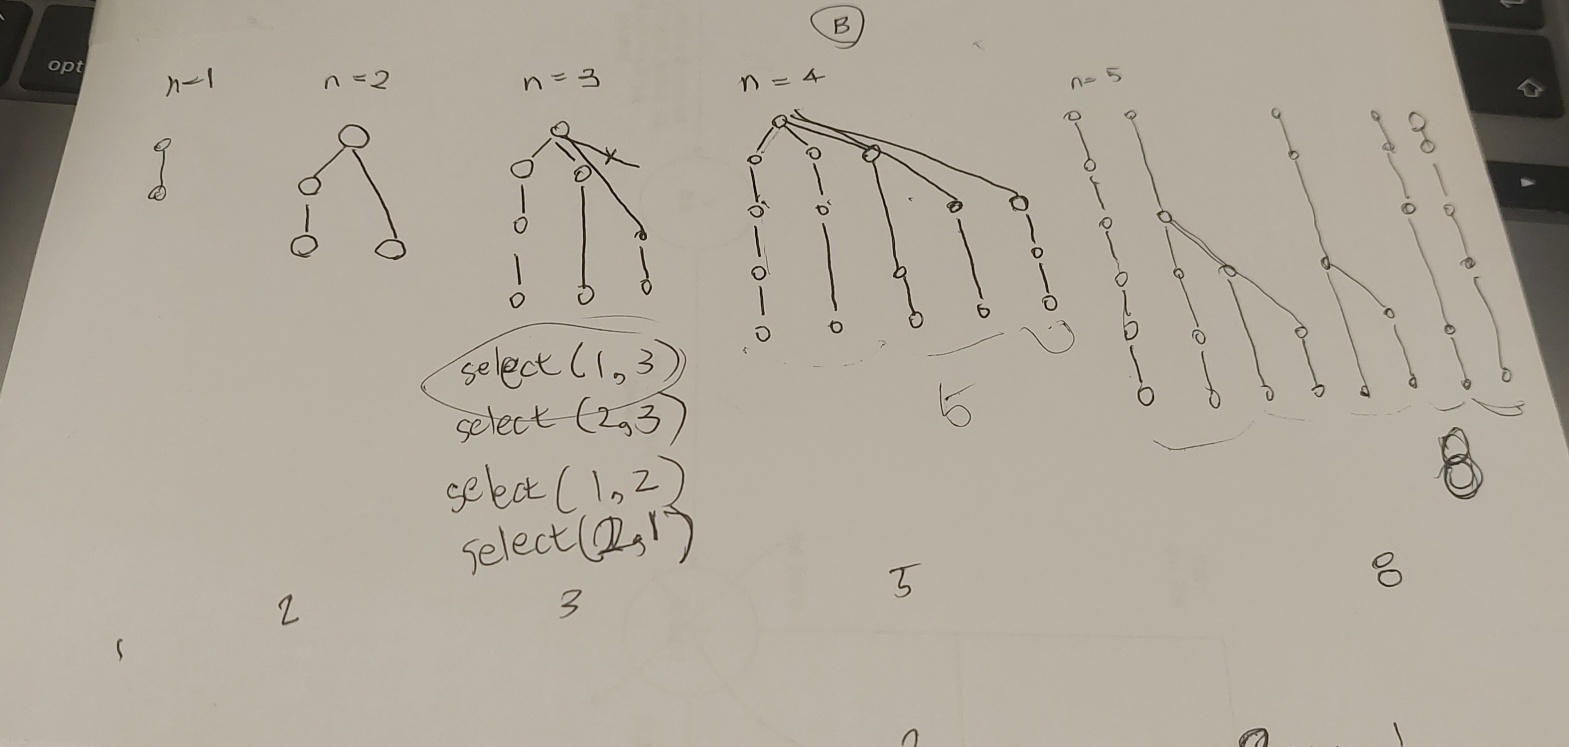 opt
B
n=1 n=2 n=3 n=4 n=5
select(1,3)
select(2,3)
select(1,2)
select(2,1)
5
8
1 2 3 5 8